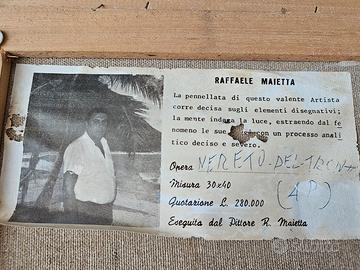 RAFFAELE MAIETTA
La pennellata di questo valente Artista
corre decisa sugli elementi disegnativi;
la mente indaga la luce, estraendo dal fe
nomeno le sue con un processo anali
tico deciso e severo.
Opera NERETO-DEL-TRONT
Misura 30x40
(4P)
Quotazione £. 280.000
Eseguita dal Pittore R. Maietta
subito